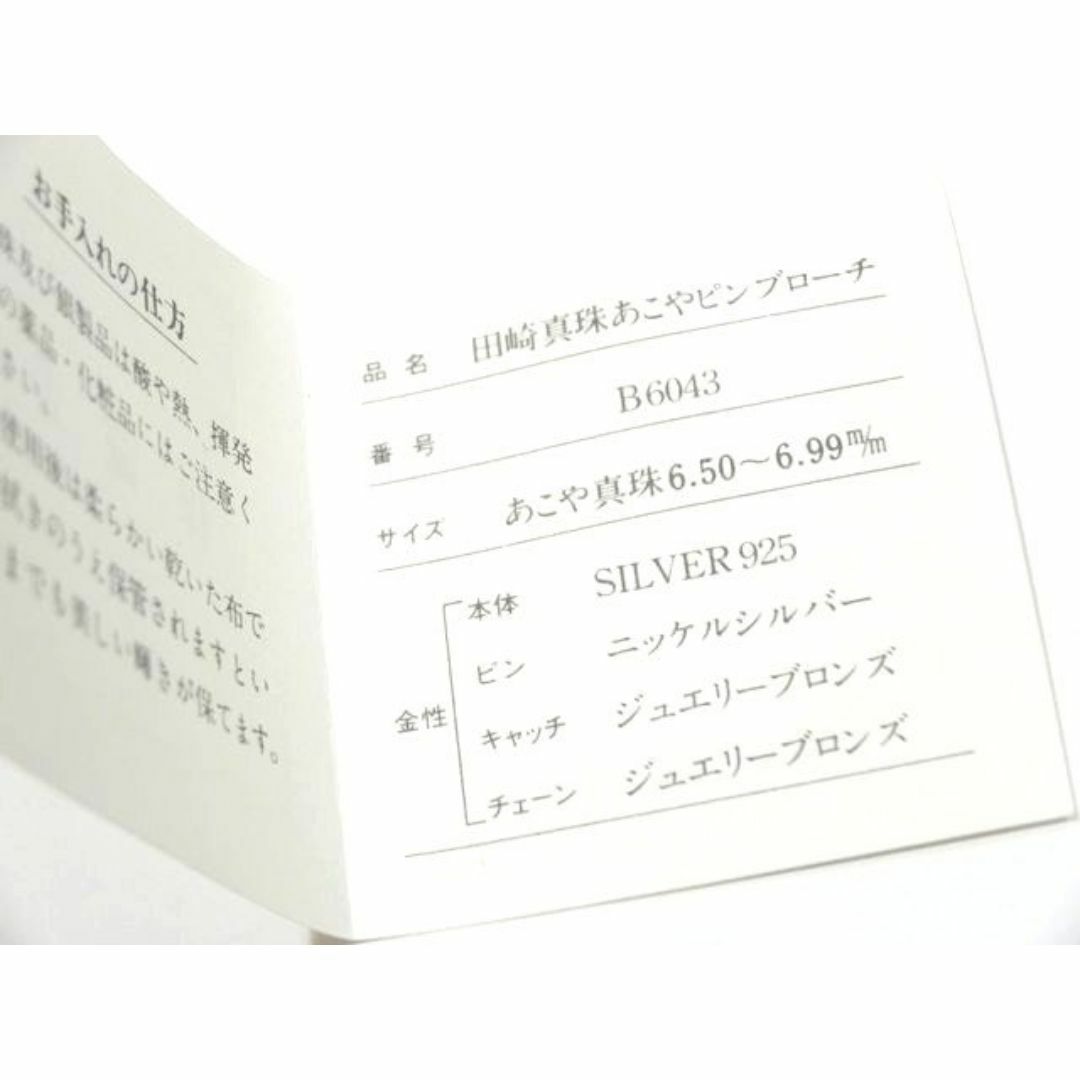 お手入れの仕方
珠及び銀製品は酸や熱、揮発
の薬品・化粧品にはご注意く
さい。
使用後は柔らかい乾いた布で
拭きのうえ保管されますとい
までも美しい輝きが保てます。
品名 田崎真珠あこやピンブローチ
番号 B6043
サイズ あこや真珠6.50～6.99m/m
金性
本体 SILVER925
ピン ニッケルシルバー
キャッチ ジュエリーブロンズ
チェーン ジュエリーブロンズ